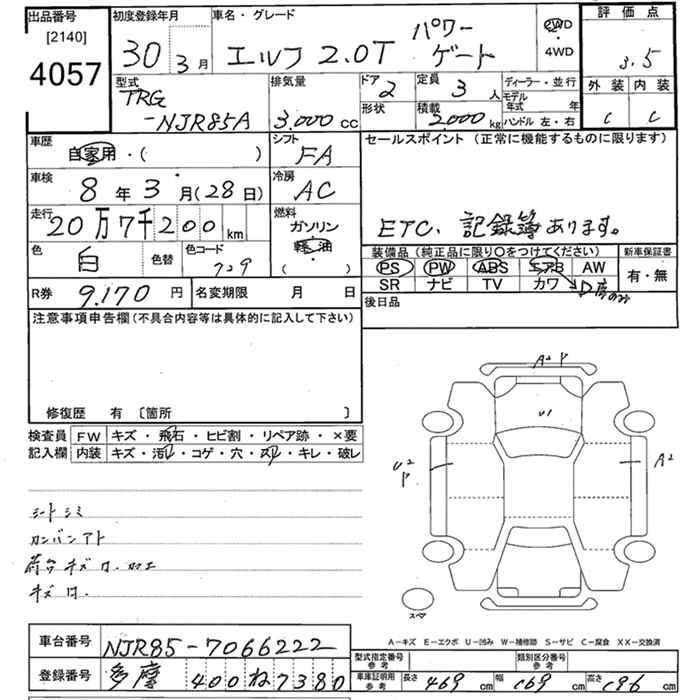 出品番号
[2140]
4057
初度登録年月
30年3月
車名・グレード
エルフ 2.0T パワーゲート
2WD
・
4WD
評価点
3.5
外装 内装
C C
型式
TRG
-NJR85A
排気量
3.000 CC
ドア
2
形状
定員
3人
積載
2000kg
ディーラー・並行
モデル年式 年
ハンドル 左・右
車歴
自家用・( )
シフト
FA
車検
8年3月(28日)
冷房
AC
走行
20万7千200km
燃料
ガソリン
軽油
( )
色
白
色替
色コード
729
R券 9.170円
名変期限 月 日
セールスポイント(正常に機能するものに限ります)
ETC、記録簿あります。
装備品(純正品に限り○をつけてください)
PS PW ABS エアB AW
SR ナビ TV カワ D席のみ
新車保証書
有・無
後日品
注意事項申告欄(不具合内容等は具体的に記入して下さい)
修復歴 有 〔箇所 〕
検査員記入欄
FW キズ・飛石・ヒビ割・リペア跡・×要
内装 キズ・汚れ・コゲ・穴・スレ・キレ・破レ
シートシミ
カンバンアト
荷台キズ ワ.加工
キズ ワ.
A2 P
U1
U2
P
A2
スペア
A-キズ E-エクボ U-凹み W-補修跡 S-サビ C-腐食 XX-交換済
車台番号 NJR85-7066222
登録番号 多摩 400ね7380
型式指定番号
参考
類別区分番号
参考
車庫証明用
参考
長さ 469cm 幅 169cm 高さ 196cm